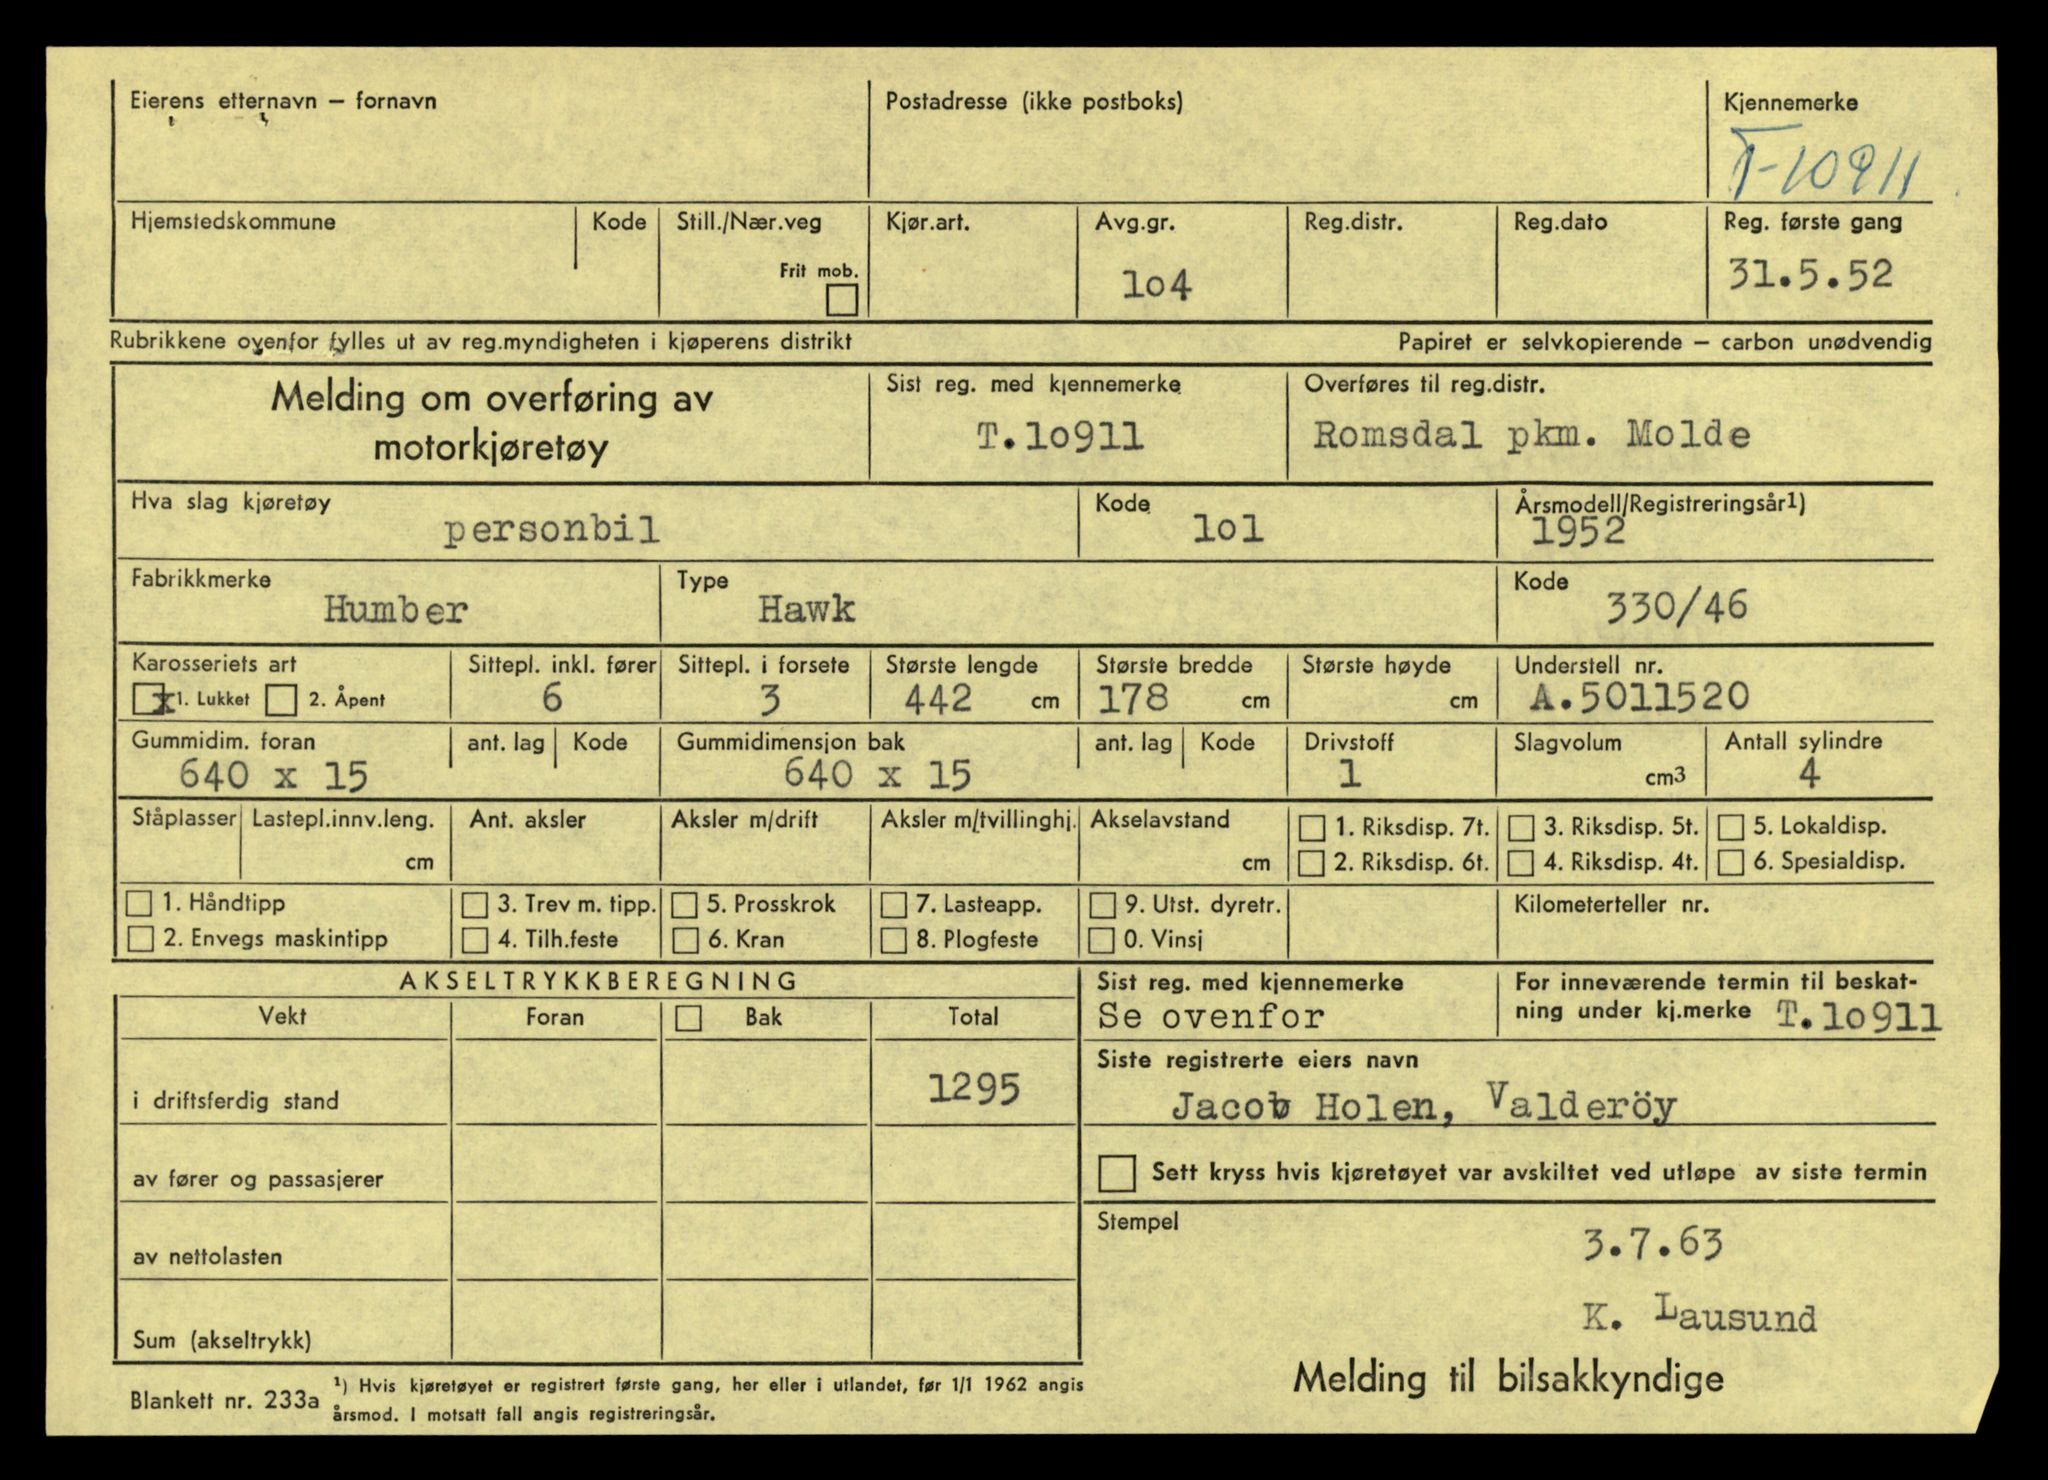 Eierens etternavn – fornavn
Postadresse (ikke postboks)
Kjennemerke
T-10911
Hjemstedskommune
Kode
Still./Nær.veg
Frit mob.
Kjør.art.
Avg.gr.
lo4
Reg.distr.
Reg.dato
Reg. første gang
31.5.52
Rubrikkene ovenfor fylles ut av reg.myndigheten i kjøperens distrikt
Papiret er selvkopierende – carbon unødvendig
Melding om overføring av
motorkjøretøy
Sist reg. med kjennemerke
T.lo911
Overføres til reg.distr.
Romsdal pkm. Molde
Hva slag kjøretøy
personbil
Kode
lol
Årsmodell/Registreringsår1)
1952
Fabrikkmerke
Humber
Type
Hawk
Kode
330/46
Karosseriets art
x 1. Lukket 2. Åpent
Sittepl. inkl. fører
6
Sittepl. i forsete
3
Største lengde
442 cm
Største bredde
178 cm
Største høyde
cm
Understell nr.
A.5011520
Gummidim. foran
640 x 15
ant. lag
Kode
Gummidimensjon bak
640 x 15
ant. lag
Kode
Drivstoff
1
Slagvolum
cm3
Antall sylindre
4
Ståplasser
Lastepl.innv.leng.
cm
Ant. aksler
Aksler m/drift
Aksler m/tvillinghj.
Akselavstand
cm
1. Riksdisp. 7t.
2. Riksdisp. 6t.
3. Riksdisp. 5t.
4. Riksdisp. 4t.
5. Lokaldisp.
6. Spesialdisp.
1. Håndtipp
2. Envegs maskintipp
3. Trev m. tipp.
4. Tilh.feste
5. Prosskrok
6. Kran
7. Lasteapp.
8. Plogfeste
9. Utst. dyretr.
0. Vinsj
Kilometerteller nr.
AKSELTRYKKBEREGNING
Vekt
Foran
Bak
Total
i driftsferdig stand
1295
av fører og passasjerer
av nettolasten
Sum (akseltrykk)
Sist reg. med kjennemerke
Se ovenfor
For inneværende termin til beskat-
ning under kj.merke T.lo911
Siste registrerte eiers navn
Jacob Holen, Valderöy
Sett kryss hvis kjøretøyet var avskiltet ved utløpe av siste termin
Stempel
3.7.63
K. Lausund
Melding til bilsakkyndige
Blankett nr. 233a
1) Hvis kjøretøyet er registrert første gang, her eller i utlandet, før 1/1 1962 angis
årsmod. I motsatt fall angis registreringsår.